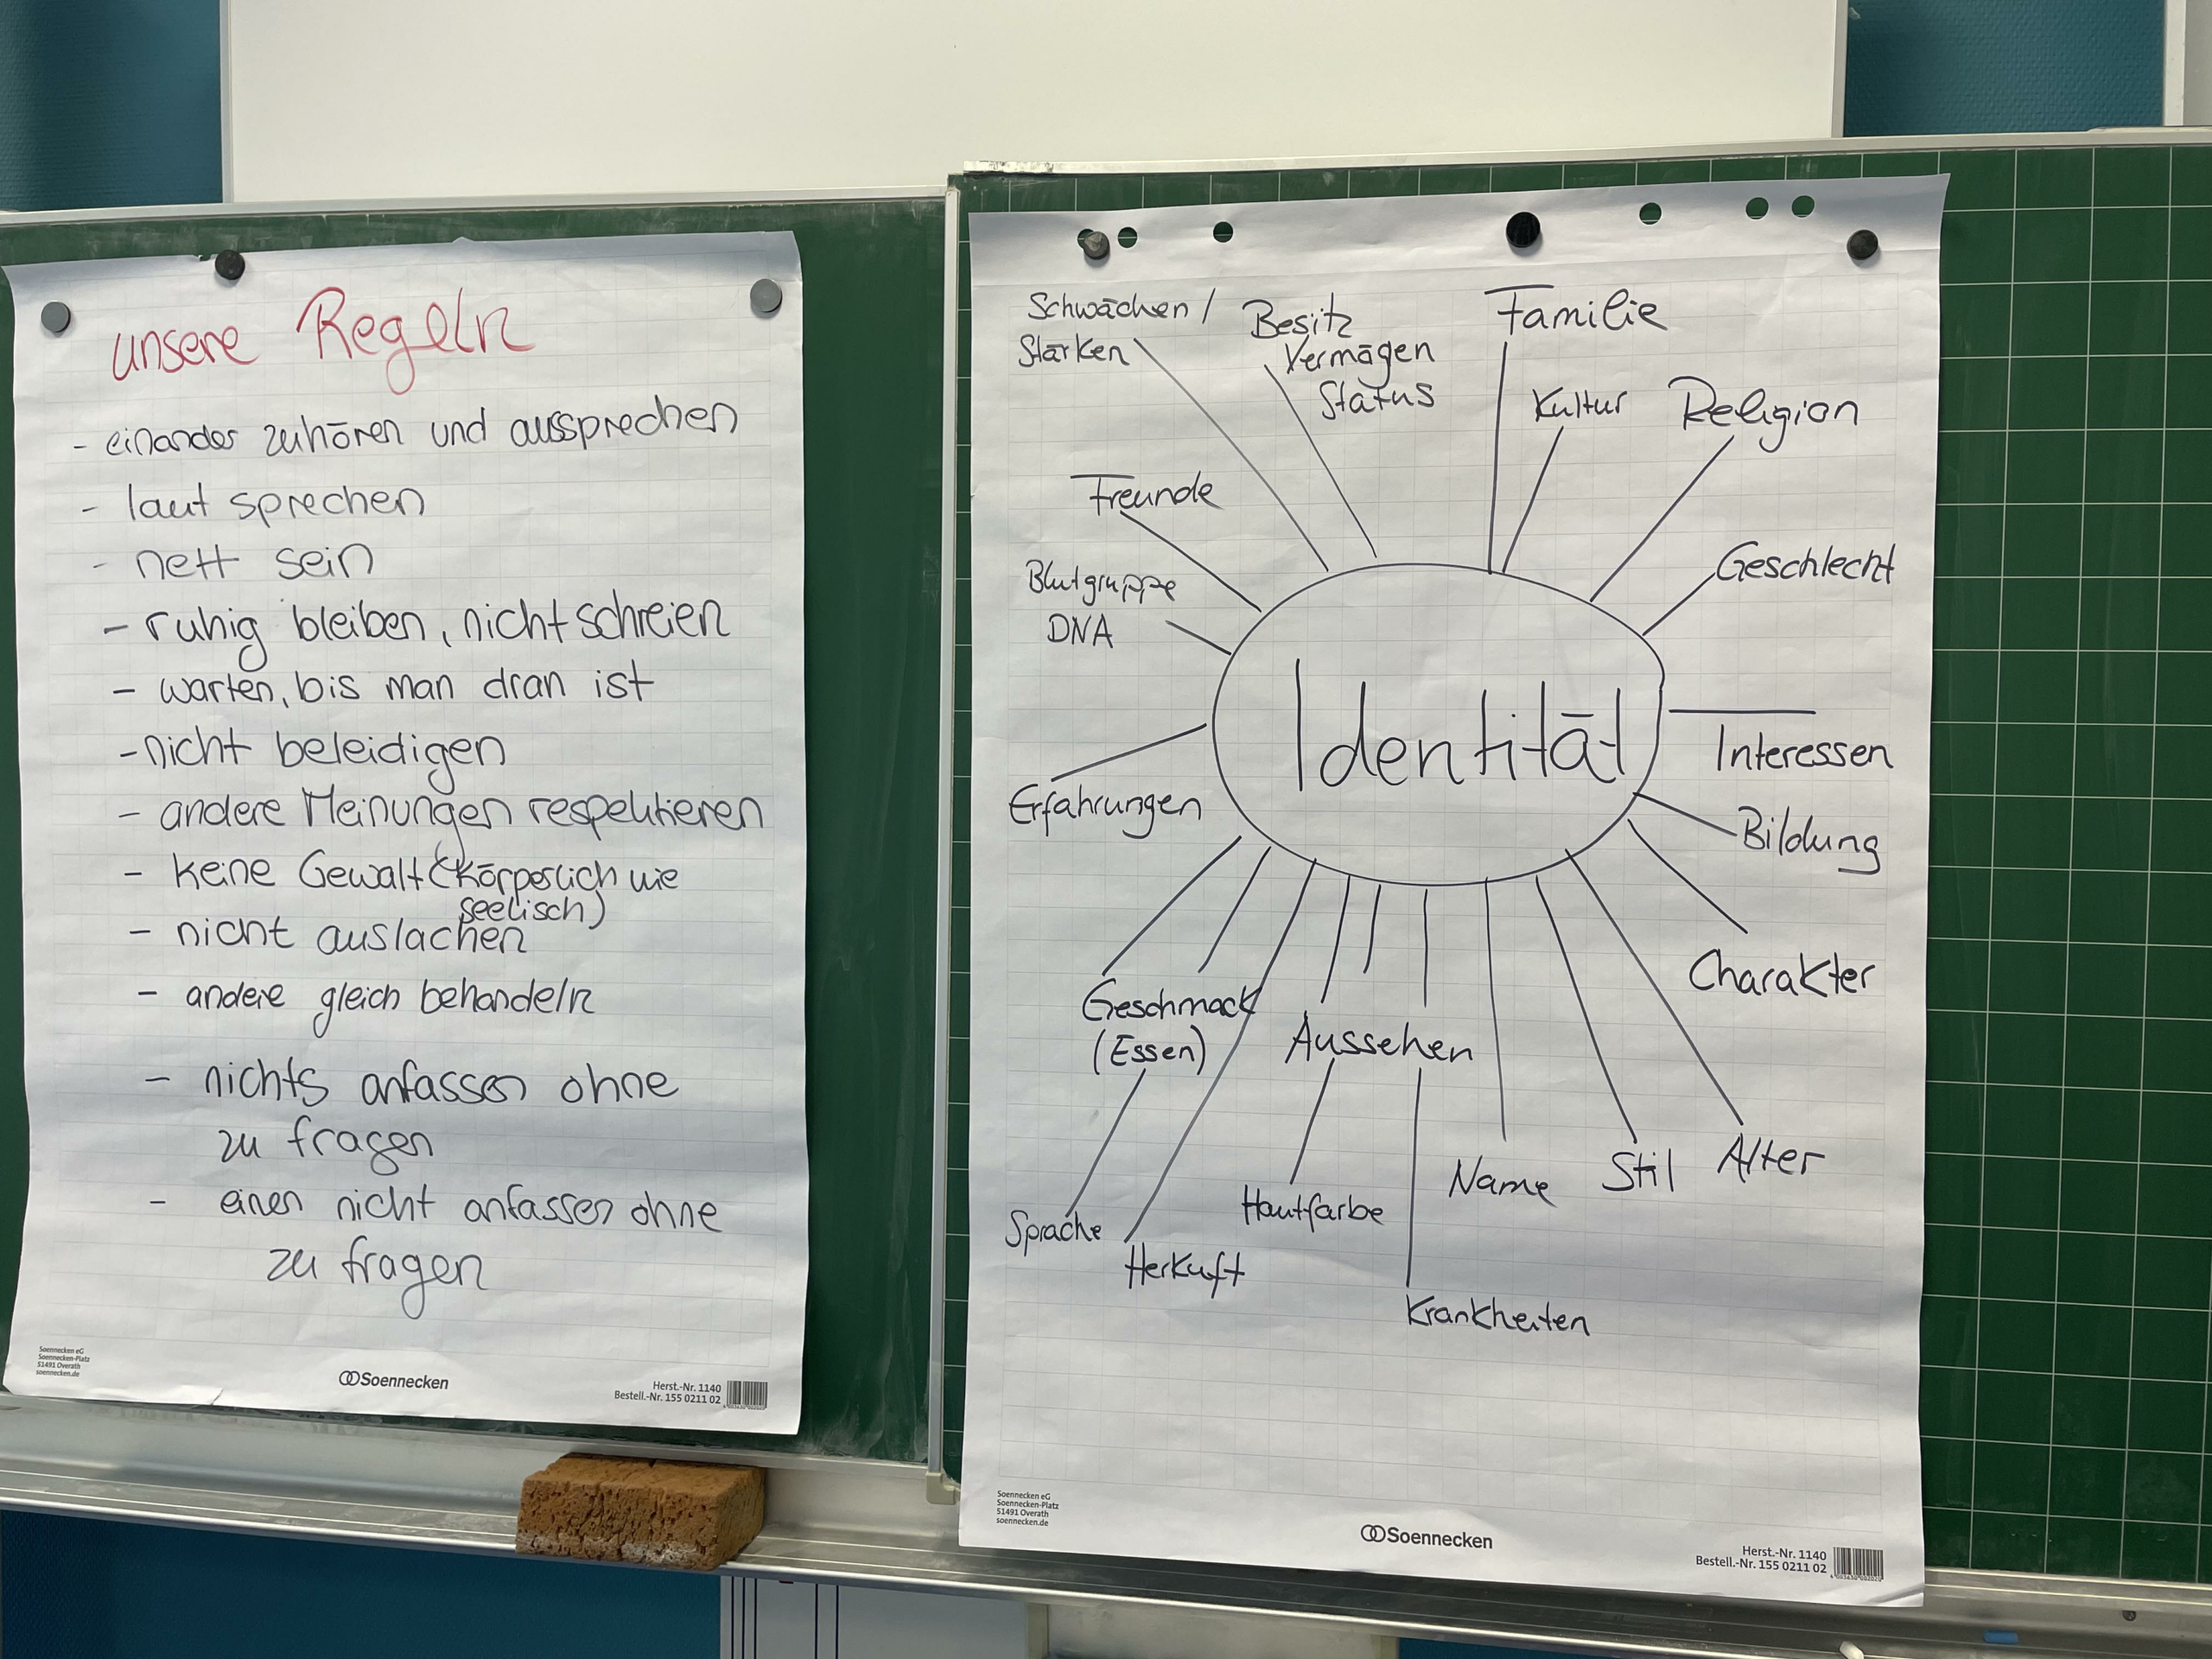 unsere Regeln
- einander zuhören und aussprechen
- laut sprechen
- nett sein
- ruhig bleiben, nicht schreien
- warten, bis man dran ist
- nicht beleidigen
- andere Meinungen respektieren
- keine Gewalt (körperlich wie
seelisch)
- nicht auslachen
- andere gleich behandeln
- nichts anfassen ohne
zu fragen
- einen nicht anfassen ohne
zu fragen
Soennecken eG
Soennecken-Platz
51491 Overath
soennecken.de
Soennecken
Herst.-Nr. 1140
Bestell.-Nr. 155 0211 02
Schwächen /
Stärken
Besitz
Vermögen
Status
Familie
Kultur
Religion
Freunde
Geschlecht
Blutgruppe
DNA
Identität
Interessen
Erfahrungen
Bildung
Charakter
Geschmack
(Essen)
Aussehen
Name
Stil
Alter
Sprache
Herkuft
Hautfarbe
Krankheiten
Soennecken eG
Soennecken-Platz
51491 Overath
soennecken.de
Soennecken
Herst.-Nr. 1140
Bestell.-Nr. 155 0211 02